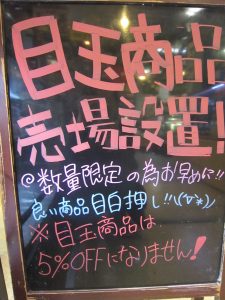 目玉商品
売場設置!
@数量限定の為お早めに!!
良い商品目白押し!!\(^▽^*)
※目玉商品は
5%OFFになりません!